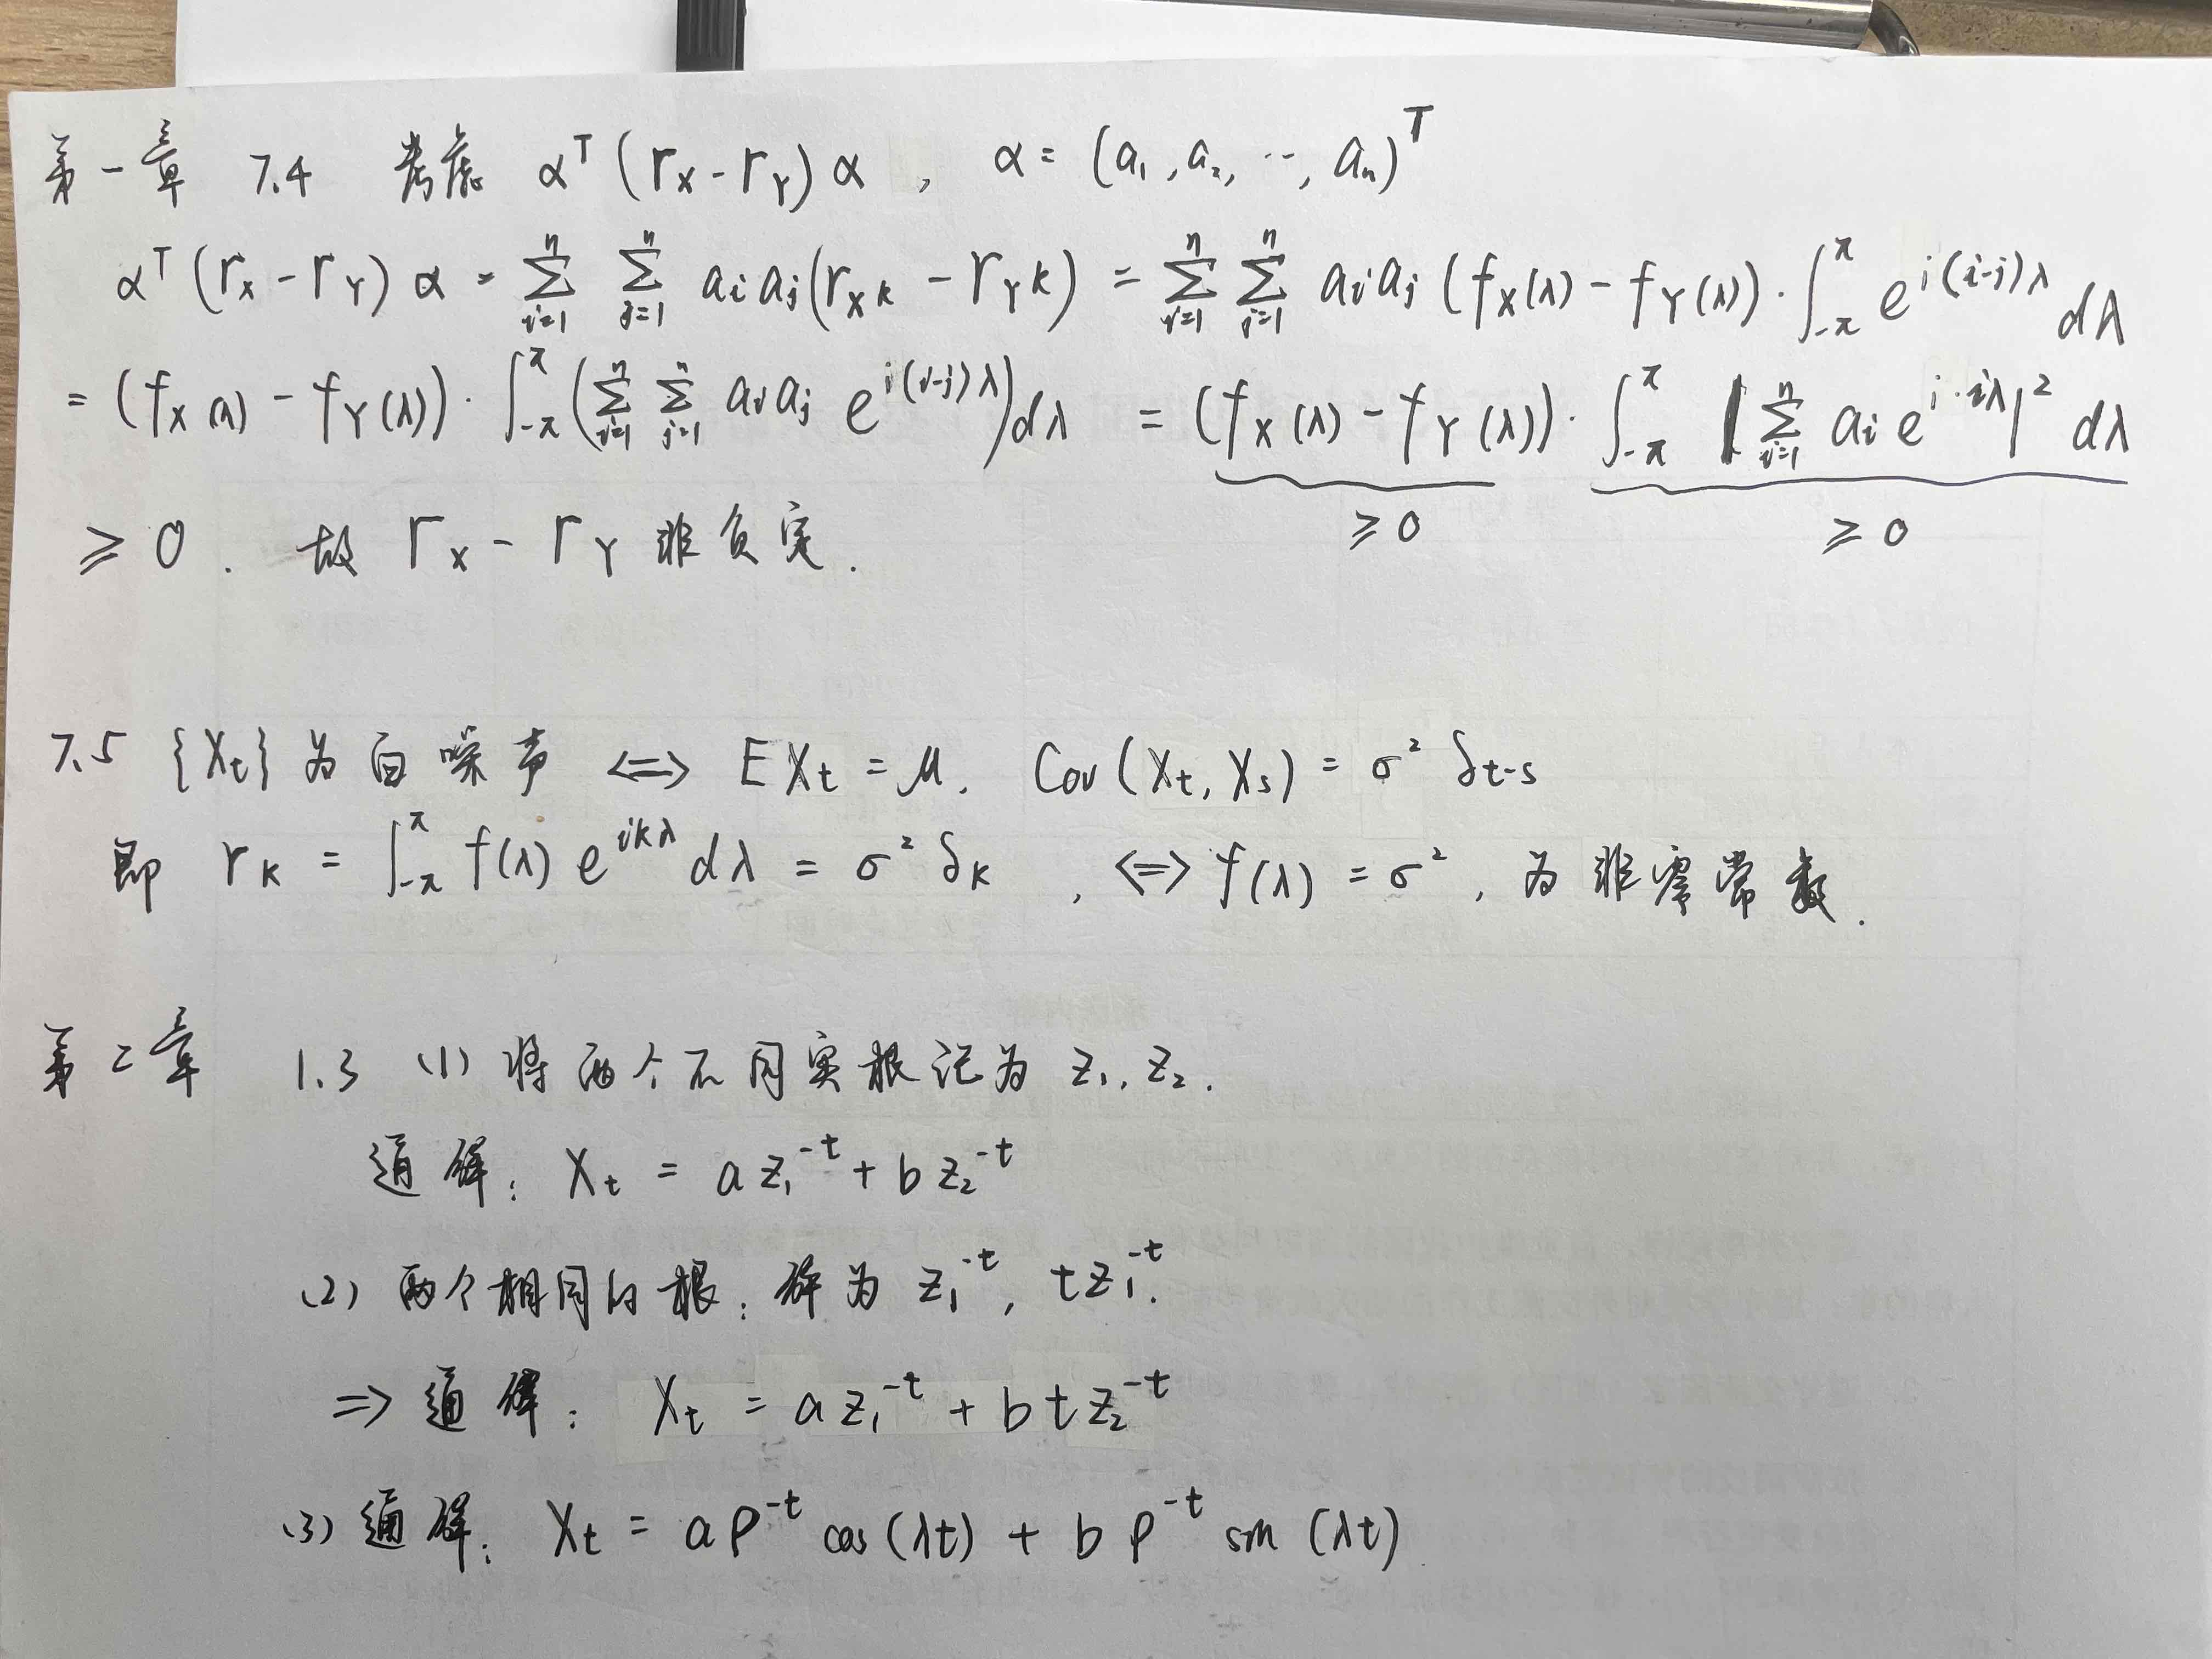 第一章 7.4 考虑 α^T (Γ_X - Γ_Y) α , α = (a_1, a_2, ⋯, a_n)^T
α^T (Γ_X - Γ_Y) α = ∑_{i=1}^n ∑_{j=1}^n a_i a_j (r_{Xk} - r_{Yk}) = ∑_{i=1}^n ∑_{j=1}^n a_i a_j (f_X(λ) - f_Y(λ)) · ∫_{-π}^π e^{i(i-j)λ} dλ
= (f_X(λ) - f_Y(λ)) · ∫_{-π}^π (∑_{i=1}^n ∑_{j=1}^n a_i a_j e^{i(i-j)λ}) dλ = (f_X(λ) - f_Y(λ)) · ∫_{-π}^π |∑_{i=1}^n a_i e^{i·iλ}|^2 dλ
≥ 0 . 故 Γ_X - Γ_Y 非负定. ≥ 0 ≥ 0
7.5 {X_t} 为白噪声 ⟺ E X_t = μ. Cov(X_t, X_s) = σ^2 δ_{t-s}
即 r_k = ∫_{-π}^π f(λ) e^{ikλ} dλ = σ^2 δ_k , ⟺ f(λ) = σ^2 , 为非零常数.
第二章 1.3 (1) 将两个不同实根记为 z_1, z_2.
通解: X_t = a z_1^{-t} + b z_2^{-t}
(2) 两个相同的根: 解为 z_1^{-t}, t z_1^{-t}.
⇒ 通解: X_t = a z_1^{-t} + b t z_2^{-t}
(3) 通解: X_t = a ρ^{-t} cos(λt) + b ρ^{-t} sin(λt)